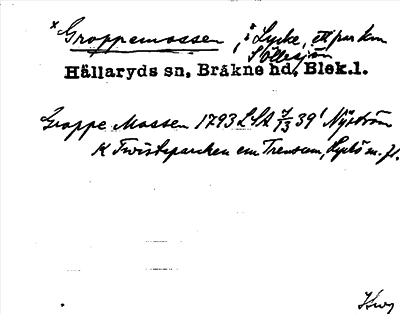 x Groppemossen, i Lycke, ett par km
S Öllesjön
Hällaryds sn, Bräkne hd, Blek.l.
Groppe Mossen 1793 LSA 7/13 39' Nyström
K Tvistparcken em Trensum,